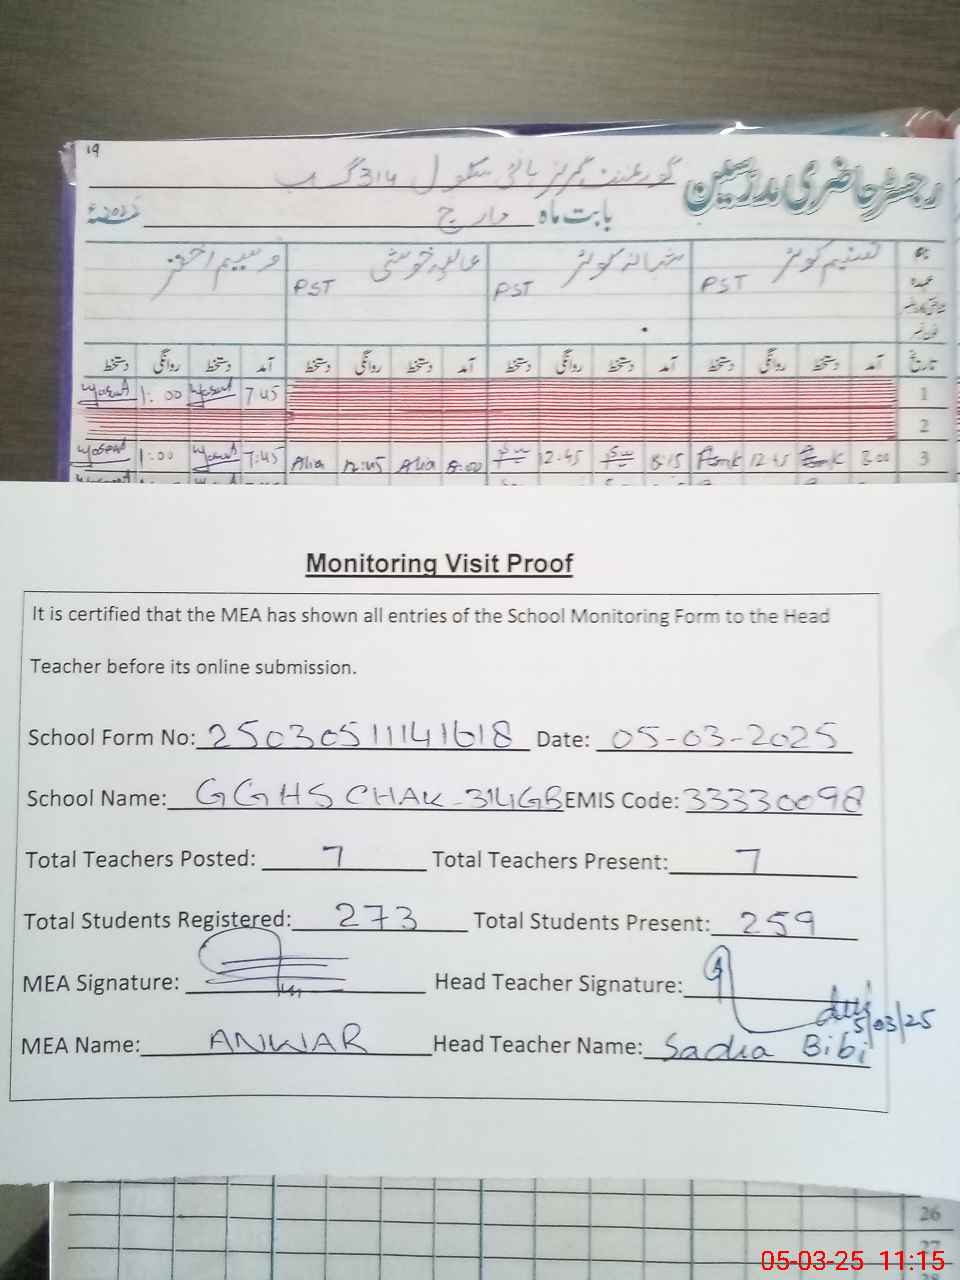 19
رجسٹر حاضری مدرسین گورنمنٹ گرلز ہائی سکول 314 گ ب
بابت ماہ مارچ
نام تسنیم کوثر شبانہ کوثر عالیہ خوشی وسیم اختر
عہدہ PST PST PST
تاریخ آمد دستخط روانگی دستخط آمد دستخط روانگی دستخط آمد دستخط روانگی دستخط آمد دستخط روانگی دستخط
1 7 45 1:00
2
3 8:00 12 45 8:15 12:45 8:00 Alia 12:45 Alia 7:45 1:00
Monitoring Visit Proof
It is certified that the MEA has shown all entries of the School Monitoring Form to the Head
Teacher before its online submission.
School Form No: 25030511141618 Date: 05-03-2025
School Name: GGHS CHAK-314GB EMIS Code: 33330098
Total Teachers Posted: 7 Total Teachers Present: 7
Total Students Registered: 273 Total Students Present: 259
MEA Signature: Head Teacher Signature:
5/03/25
MEA Name: ANWAR Head Teacher Name: Sadia Bibi
26
27
05-03-25 11:15